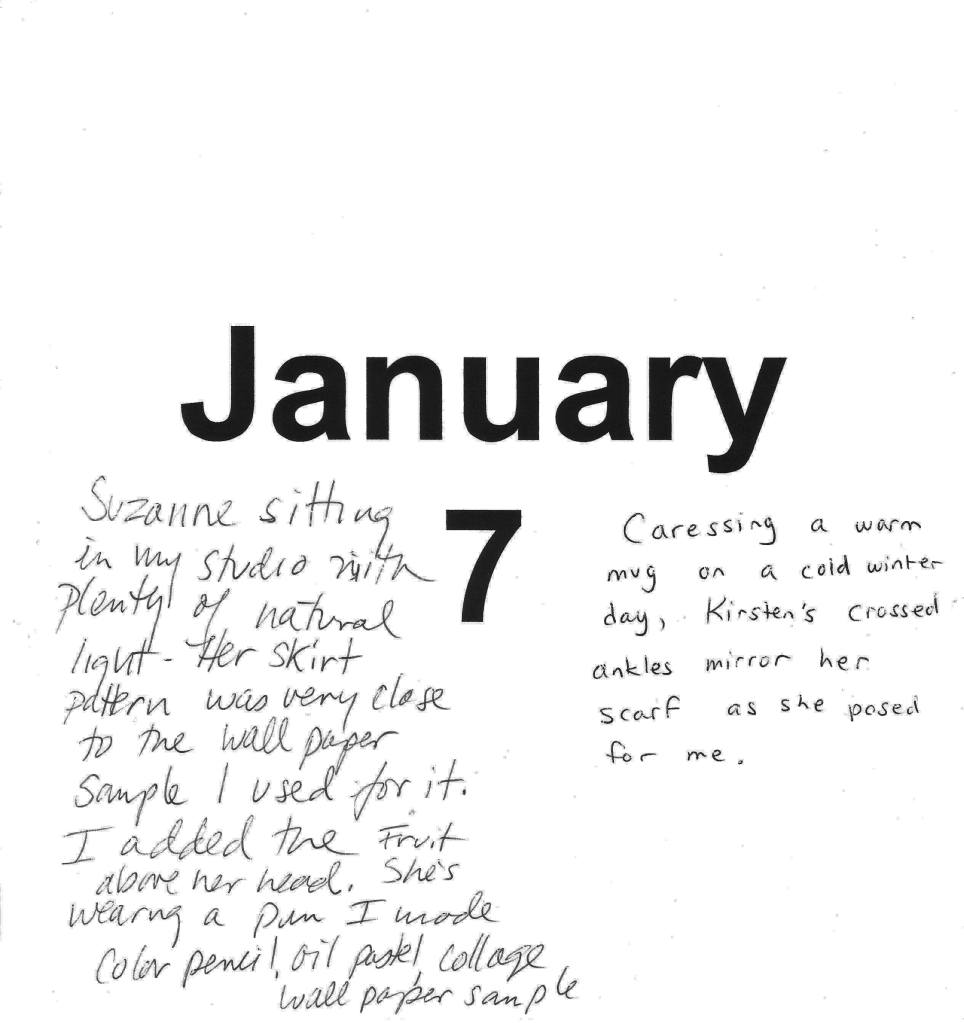 January
7
Suzanne sitting
in my studio with
plenty of natural
light - Her skirt
pattern was very close
to the wall paper
sample I used for it.
I added the Fruit
above her head. She's
wearng a pin I made
Color pencil, oil pastel collage
wall paper sample
Caressing a warm
mug on a cold winter
day, Kirsten's crossed
ankles mirror her
scarf as she posed
for me.